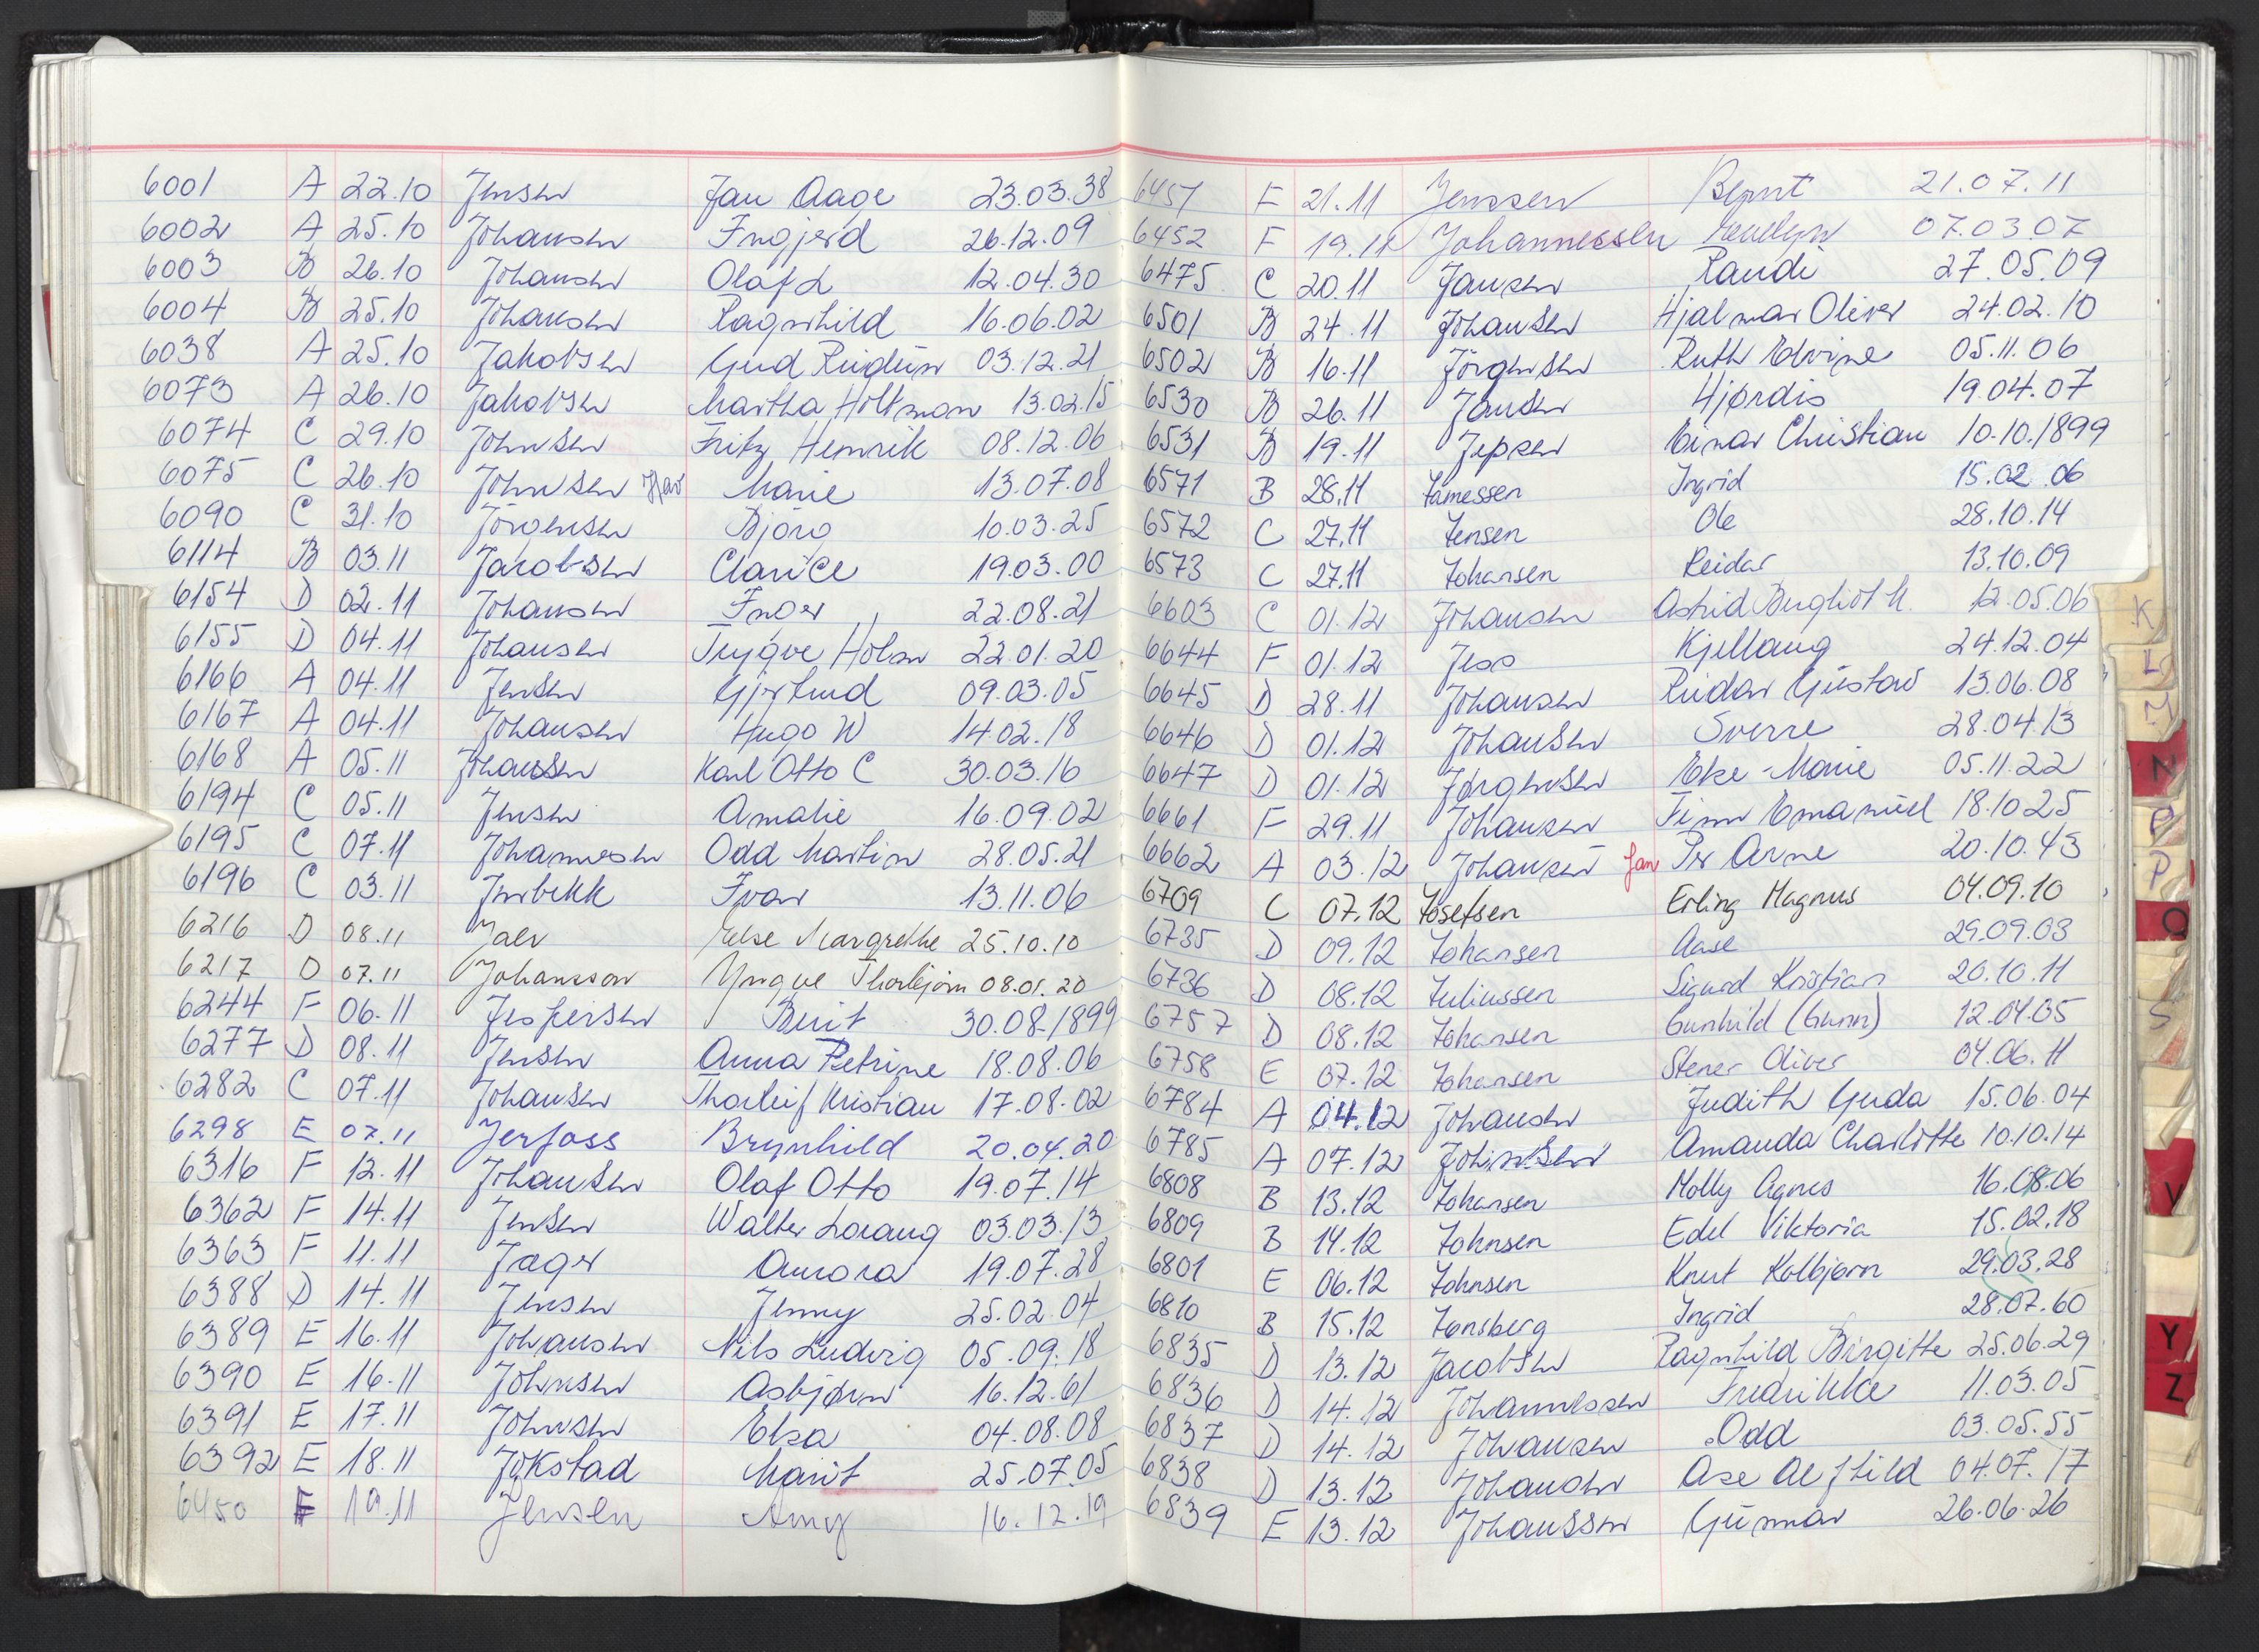 6001 A 22.10 Jensen Jan Aage 23.03.38
6002 A 25.10 Johansen Ingjerd 26.12.09
6003 B 26.10 Johansen Olaf L 12.04.30
6004 B 25.10 Johansen Ragnhild 16.06.02
6038 A 25.10 Jakobsen Gud Reidun 03.12.21
6073 A 26.10 Jakobsen Martha Holtman 13.02.15
6074 C 29.10 Johnsen Fritz Henrik 08.12.06
6075 C 26.10 Johnsen Marie 13.07.08
6090 C 31.10 Jörgensen Björg 10.03.25
6114 B 03.11 Jacobsen Clarice 19.03.00
6154 D 02.11 Johansen Inger 22.08.21
6155 D 04.11 Johansen Trygve Holm 22.01.20
6166 A 04.11 Jensen Gjertrud 09.03.05
6167 A 04.11 Johansen Hugo W 14.02.18
6168 A 05.11 Johansen Karl Otto C 30.03.16
6194 C 05.11 Jensen Amalie 16.09.02
6195 C 07.11 Johannesen Odd Martin 28.05.21
6196 C 03.11 Jnrbekk Ivar 13.11.06
6216 D 08.11 Else Margrethe 25.10.10
6217 D 07.11 Johansson Yngve Thorbjørn 08.01.20
6244 F 06.11 Jespersen Berit 30.08.1899
6277 D 08.11 Jensen Anna Petrine 18.08.06
6282 C 07.11 Johansen Thorleif Kristian 17.08.02
6298 E 07.11 Jerfoss Brynhild 20.04.20
6316 F 12.11 Johansen Olaf Otto 19.07.14
6362 F 14.11 Jensen Walter Lorang 03.03.13
6363 F 11.11 Jager Aurora 19.07.28
6388 D 14.11 Jensen Jenny 25.02.04
6389 E 16.11 Johansen Nils Ludvig 05.09.18
6390 E 16.11 Johnsen Asbjørn 16.12.61
6391 E 17.11 Johnsen Elsa 04.08.08
6392 E 18.11 Jokstad Marit 25.07.05
6450 F 19.11 Jensen Amy 16.12.19
6451 F 21.11 Jenssen Bernt 21.07.11
6452 F 19.11 Johannessen Evelyn 07.03.07
6475 C 20.11 Jansen Randi 27.05.09
6501 B 24.11 Johansen Hjalmar Oliver 24.02.10
6502 B 16.11 Jörgensen Ruth Edvine 05.11.06
6530 B 26.11 Jansen Hjørdis 19.04.07
6531 B 19.11 Jepsen Einar Christian 10.10.1899
6571 B 28.11 Jamessen Ingrid 15.02.06
6572 C 27.11 Jensen Ole 28.10.14
6573 C 27.11 Johansen Reidar 13.10.09
6603 C 01.12 Johansen Astrid Bergliot M. 12.05.06
6644 F 01.12 Jess Kjellaug 24.12.04
6645 D 28.11 Johansen Reidar Gustav 13.06.08
6646 D 01.12 Johansen Sverre 28.04.13
6647 D 01.12 Jørgensen Else-Marie 05.11.22
6661 F 29.11 Johansen Finn Emanuel 18.10.25
6662 A 03.12 Johansen Jan Per Arne 20.10.43
6709 C 07.12 Josefsen Erling Magnus 04.09.10
6735 D 09.12 Johansen Aase 29.09.03
6736 D 08.12 Juliussen Sigurd Kristian 20.10.11
6757 D 08.12 Johansen Gunhild (Gunn) 12.04.05
6758 E 07.12 Johansen Stener Oliver 04.06.11
6784 A 04.12 Johansen Judith Gerda 15.06.04
6785 A 07.12 Johnsen Amanda Charlotte 10.10.14
6808 B 13.12 Johansen Molly Agnes 16.08.06
6809 B 14.12 Johnsen Edel Viktoria 15.02.18
6801 E 06.12 Johnsen Knut Kolbjørn 29.03.28
6810 B 15.12 Jonsberg Ingrid 28.07.60
6835 D 13.12 Jacobsen Ragnhild Birgitte 25.06.29
6836 D 14.12 Johannessen Fredrikke 11.03.05
6837 D 14.12 Johansen Odd 03.05.55
6838 D 13.12 Johansen Ase Alfhild 04.07.17
6839 E 13.12 Johansson Gunnar 26.06.26
K
L
M
N
P
Q
S
V
Y
Z